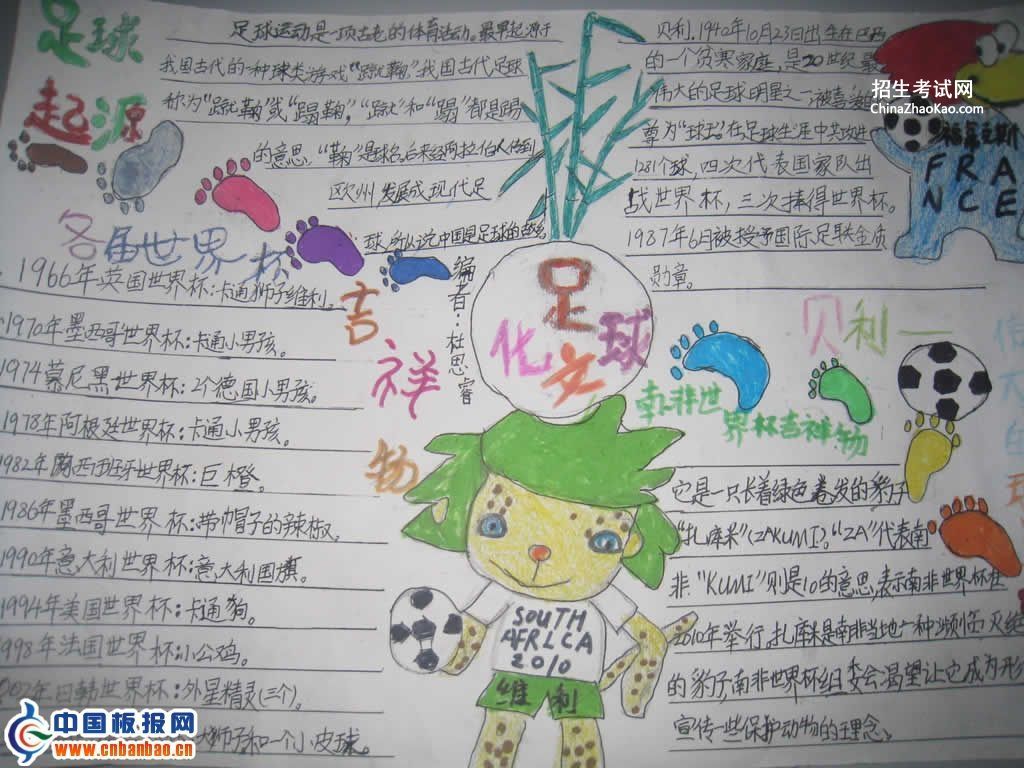 足球
起源
足球运动是一项古老的体育活动。最早起源于
我国古代的一种球类游戏“蹴鞠”我国古代足球
称为“蹴鞠”或“蹋鞠”，“蹴”和“蹋”都是踢
的意思，“鞠”是球名。后来经阿拉伯人传到
欧州，发展成现代足
球。所以说中国是足球的故乡
编者：杜思睿
各届世界杯
吉祥物
1966年英国世界杯：卡通狮子维利。
1970年墨西哥世界杯：卡通小男孩。
1974慕尼黑世界杯：2个德国小男孩。
1978年阿根廷世界杯：卡通小男孩。
1982年西班牙世界杯：巨橙。
1986年墨西哥世界杯：带帽子的辣椒。
1990年意大利世界杯：意大利国旗。
1994年美国世界杯：卡通狗。
998年法国世界杯：小公鸡。
002年日韩世界杯：外星精灵（三个）。
狮子和一个小皮球。
足球
文化
SOUTH
AFRLCA
2010
维利
贝利，1940年10月23日出生在巴西
的一个贫寒家庭，是20世纪最
伟大的足球明星之一，被喜
尊为“球王”在足球生涯中共攻进
1281个球，四次代表国家队出
战世界杯，三次捧得世界杯。
1987年6月被授予国际足联金质
勋章。
FRA
NCE
贝利一
伟大的球
南非世
界杯吉祥物
它是一只长着绿色卷发的豹子
“扎库米”（ZAKUMI）。“ZA”代表南
非“KUMI”则是10的意思，表示南非世界杯在
2010年举行。扎库米是南非当地一种频临灭绝
的豹子，南非世界杯组委会渴望让它成为形
宣传一些保护动物的理念。
招生考试网
ChinaZhaoKao.com
中国板报网
www.cnbanbao.cn